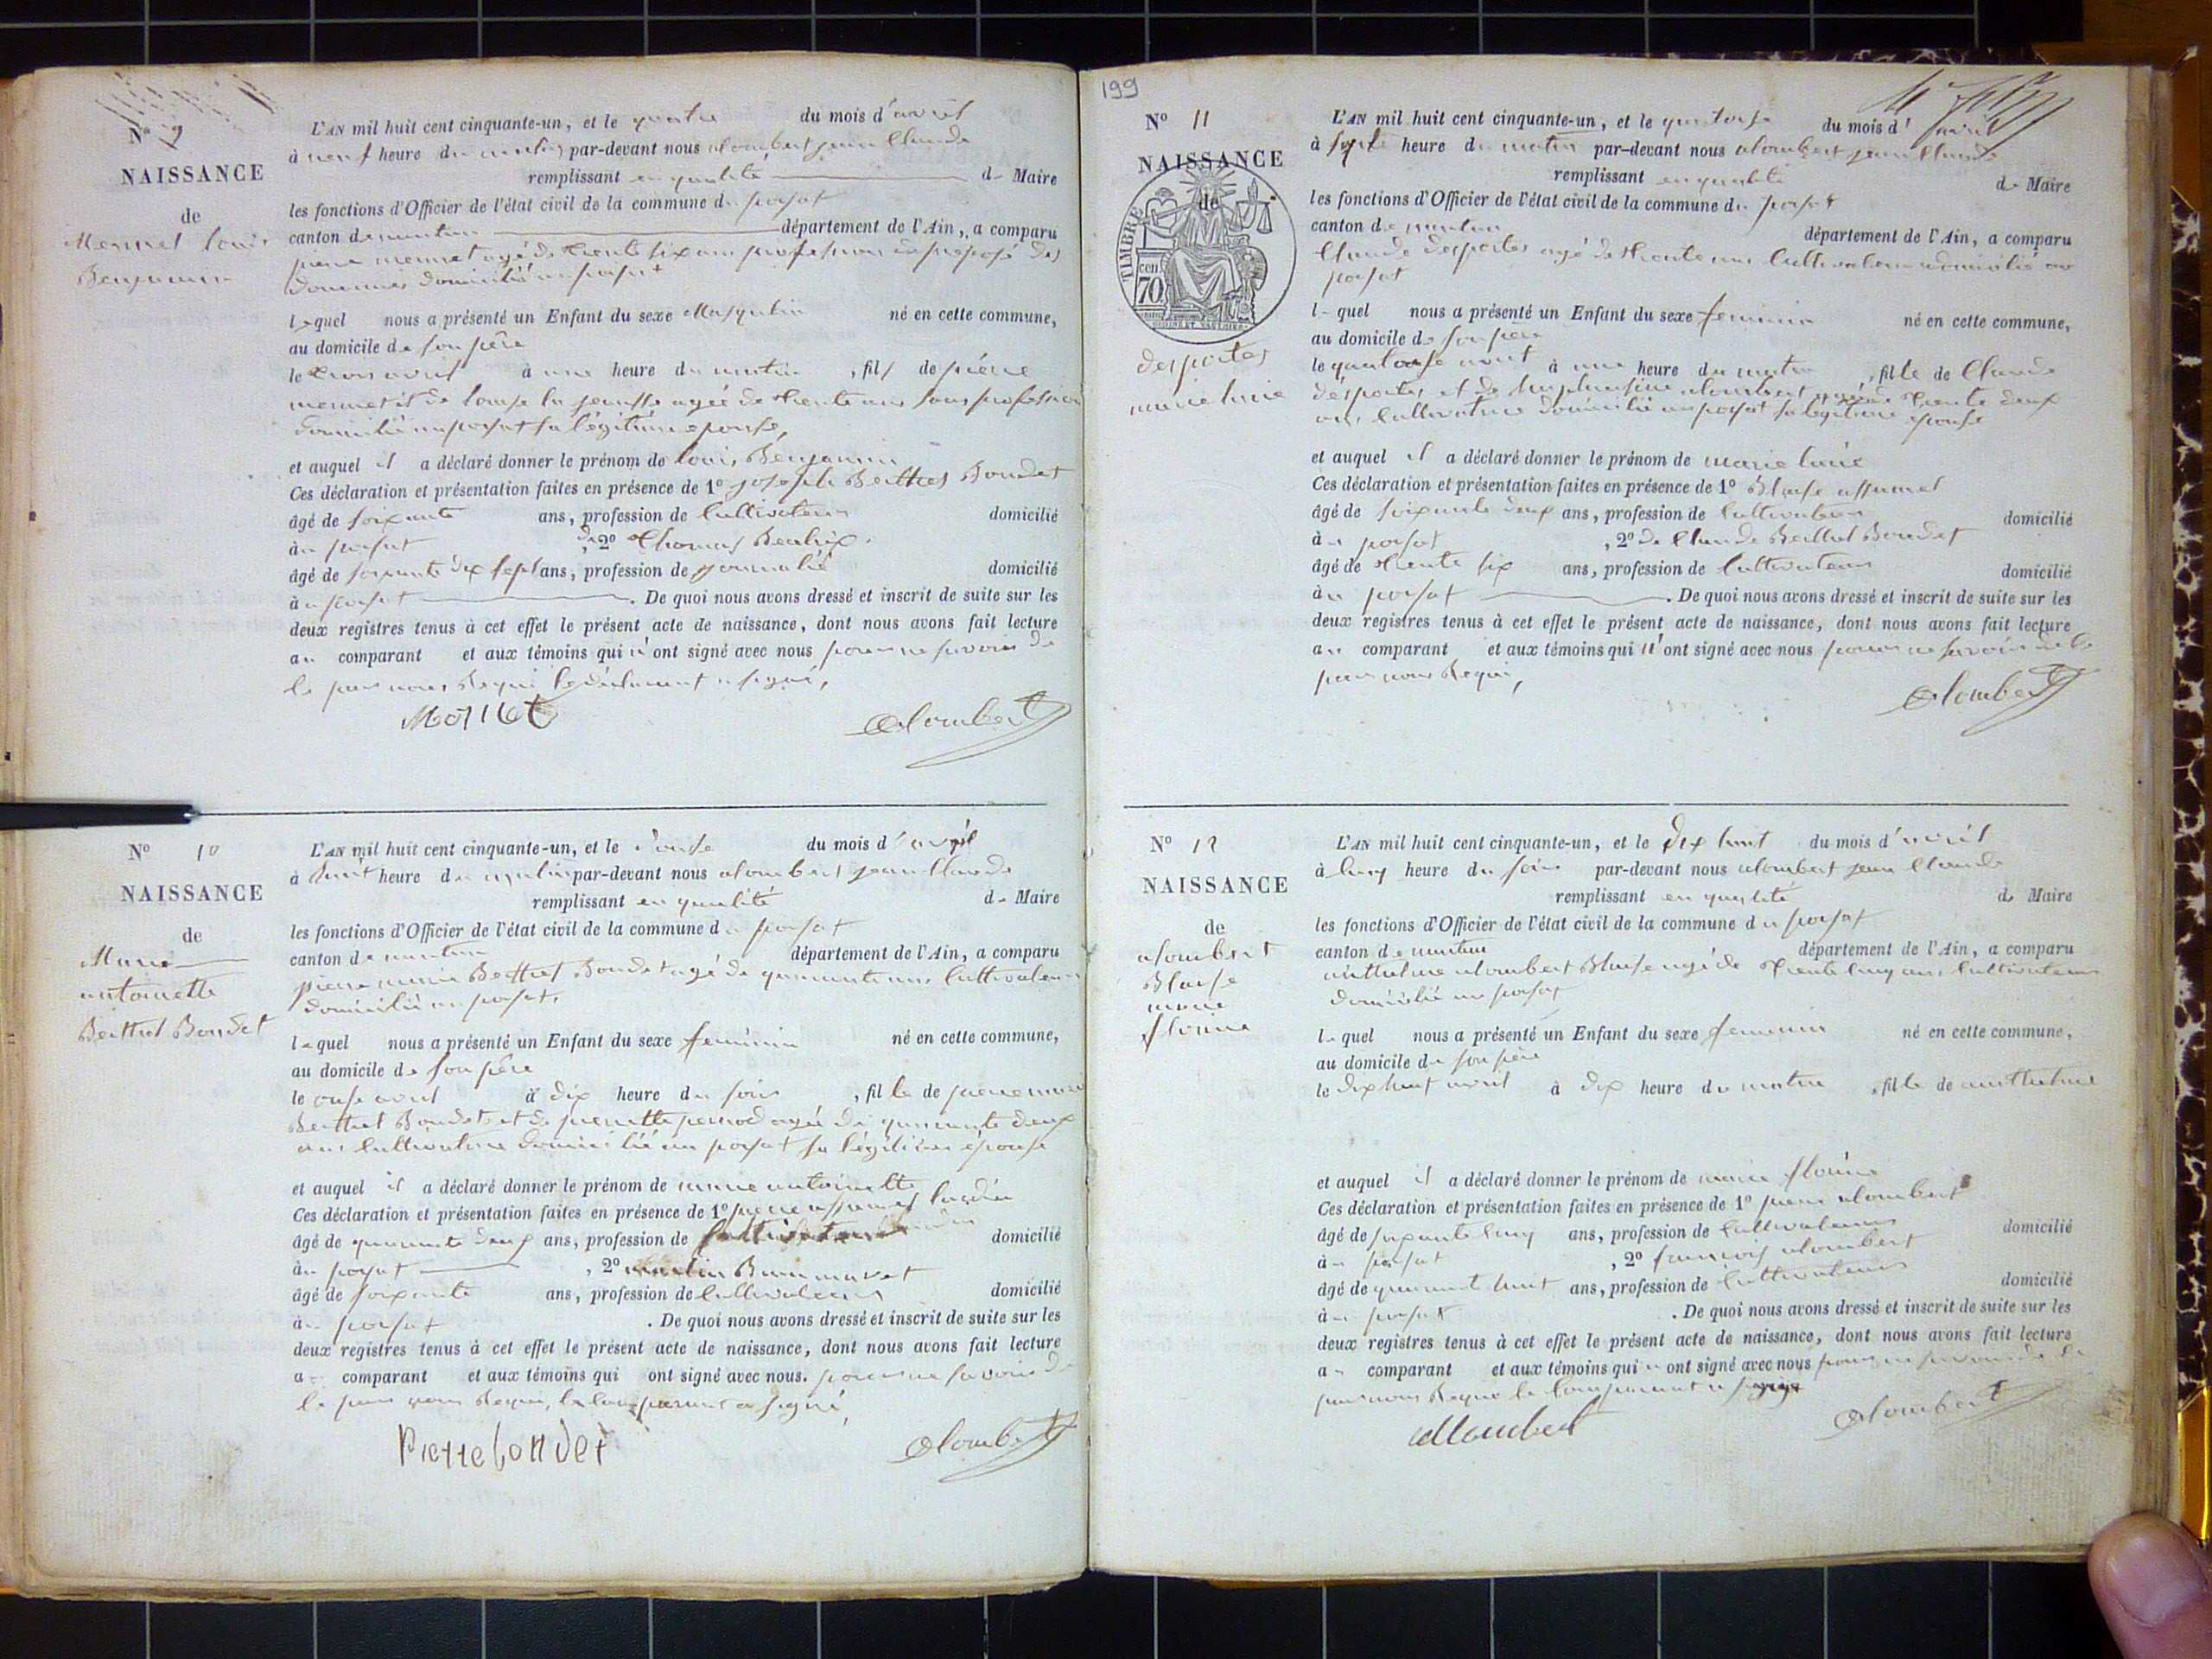 N° 9
NAISSANCE
de
Mermet Louis
Benjamin
L'AN mil huit cent cinquante-un, et le quatre du mois d'avril
à neuf heure du matin par-devant nous alombert jean Claude
remplissant en qualité de Maire
les fonctions d'Officier de l'état civil de la commune du poisat
canton de nantua département de l'Ain, a comparu
pierre mermet agé de trente six ans profession de préposé des
douannes domicilié au poisat
lequel nous a présenté un Enfant du sexe Masqulin né en cette commune,
au domicile de son père
le trois avril à une heure du matin, fils de pierre
mermet et de louise la jeunesse agée de trente ans sans profession
domicilié au poisat sa légitime epouse,
et auquel il a déclaré donner le prénom de louis Benjamin
Ces déclaration et présentation faites en présence de 1° joseph Berthet Bondet
âgé de soixante ans, profession de Cultivateur domicilié
au poisat, de 2° Thomas Beatrix.
âgé de soixante dix sept ans, profession de journalié domicilié
au poisat. De quoi nous avons dressé et inscrit de suite sur les
deux registres tenus à cet effet le présent acte de naissance, dont nous avons fait lecture
au comparant et aux témoins qui n'ont signé avec nous pour ne savoir de
le par nous Requi le déclarant a signé,
Mermet alombert
N° 10
NAISSANCE
de
Marie
antoinette
Berthet Bondet
L'AN mil huit cent cinquante-un, et le douse du mois d'avril
à huit heure du matin par-devant nous alombert jean Claude
remplissant en qualité de Maire
les fonctions d'Officier de l'état civil de la commune du poisat
canton de nantua département de l'Ain, a comparu
pierre marie Berthet Bondet agé de quarante ans Cultivateur
domicilié au poisat,
lequel nous a présenté un Enfant du sexe feminin né en cette commune,
au domicile de son père
le onse avril à dix heure du soir, fille de pierre marie
Berthet Bondet et de pierrette pernod agée de quarante deux
ans Cultivatrice domicilié au poisat sa légitime épouse
et auquel il a déclaré donner le prénom de marie antoinette
Ces déclaration et présentation faites en présence de 1° pierre assumel
âgé de quarante deux ans, profession de Cultivateur domicilié
au poisat, 2°
âgé de soixante ans, profession de Cultivateur domicilié
au poisat. De quoi nous avons dressé et inscrit de suite sur les
deux registres tenus à cet effet le présent acte de naissance, dont nous avons fait lecture
au comparant et aux témoins qui ont signé avec nous. pour ne savoir de
le par nous Requi, le Comparant a signé,
Pierre bondet alombert
199
N° 11
NAISSANCE
de
TIMBRE
cen 70
desportes
marie lucie
L'AN mil huit cent cinquante-un, et le quatorse du mois d'avril
à sept heure du matin par-devant nous alombert jean Claude
remplissant en qualité de Maire
les fonctions d'Officier de l'état civil de la commune du poisat
canton de nantua département de l'Ain, a comparu
Claude desportes agé de trente ans Cultivateur domicilié au
poisat
lequel nous a présenté un Enfant du sexe feminin né en cette commune,
au domicile de son père
le quatorse avril à une heure du matin, fille de Claude
desportes et de alombert agée de trente deux
ans, Cultivatrice domicilié au poisat sa légitime épouse
et auquel il a déclaré donner le prénom de marie lucie
Ces déclaration et présentation faites en présence de 1° Blaise assumel
âgé de soixante deux ans, profession de Cultivateur domicilié
au poisat, 2° de Claude Berthet Bondet
âgé de trente six ans, profession de Cultivateur domicilié
au poisat. De quoi nous avons dressé et inscrit de suite sur les
deux registres tenus à cet effet le présent acte de naissance, dont nous avons fait lecture
au comparant et aux témoins qui n'ont signé avec nous pour ne savoir de le
par nous Requi,
alombert
N° 12
NAISSANCE
de
alombert
Blaise
marie
florine
L'AN mil huit cent cinquante-un, et le dix huit du mois d'avril
à Cinq heure du soir par-devant nous alombert jean Claude
remplissant en qualité de Maire
les fonctions d'Officier de l'état civil de la commune du poisat
canton de nantua département de l'Ain, a comparu
anthelme alombert Blaise agé de trente Cinq ans Cultivateur
domicilié au poisat
lequel nous a présenté un Enfant du sexe feminin né en cette commune,
au domicile de son père
le dix huit avril à dix heure du matin, fille de anthelme
et auquel il a déclaré donner le prénom de marie florine
Ces déclaration et présentation faites en présence de 1° pierre alombert
âgé de soixante Cinq ans, profession de Cultivateur domicilié
au poisat, 2° francois alombert
âgé de quarante huit ans, profession de Cultivateur domicilié
au poisat. De quoi nous avons dressé et inscrit de suite sur les
deux registres tenus à cet effet le présent acte de naissance, dont nous avons fait lecture
au comparant et aux témoins qui n ont signé avec nous pour ne savoir de le
par nous Requi le Comparant a signé
allombert alombert